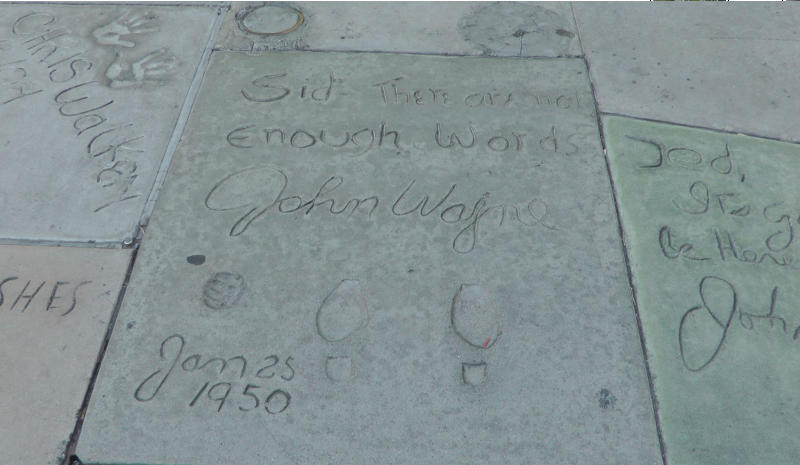 Chris Walken
Sid - There are not
Enough Words
John Wayne
Jan 25
1950
SHES
Jed,
It's
be Here
John